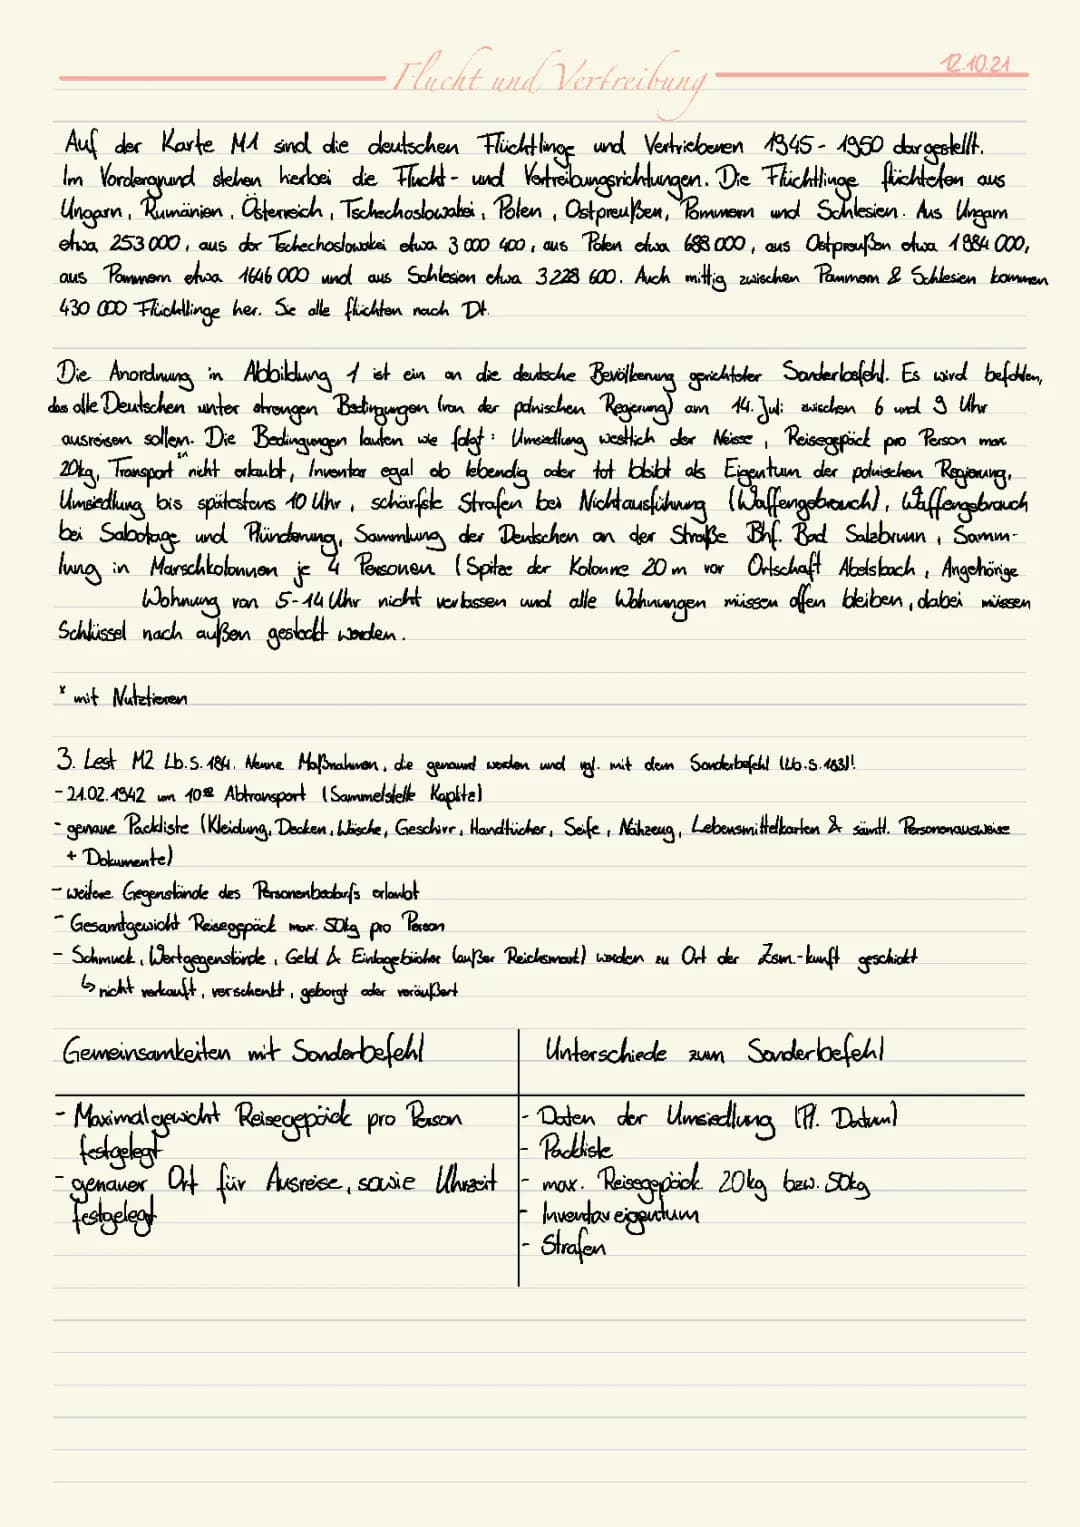 Flucht und Vertreibung
12.10.21
Auf der Karte M1 sind die deutschen Flüchtlinge und Vertriebenen 1945 - 1950 dargestellt.
Im Vordergrund stehen hierbei die Flucht- und Vertreibungsrichtungen. Die Flüchtlinge flüchteten aus
Ungarn, Rumänien, Österreich, Tschechoslowakei, Polen, Ostpreußen, Pommern und Schlesien. Aus Ungarn
etwa 253 000, aus der Tschechoslowakei etwa 3 000 400, aus Polen etwa 688 000, aus Ostpreußen etwa 1 984 000,
aus Pommern etwa 1646 000 und aus Schlesien etwa 3 228 600. Auch mittig zwischen Pommern & Schlesien kommen
430 000 Flüchtlinge her. Sie alle flüchten nach Dt.
Die Anordnung in Abbildung 1 ist ein an die deutsche Bevölkerung gerichteter Sonderbefehl. Es wird befohlen,
das alle Deutschen unter strengen Bedingungen (von der polnischen Regierung) am 14. Juli zwischen 6 und 9 Uhr
ausreisen sollen. Die Bedingungen lauten wie folgt: Umsiedlung westlich der Neisse, Reisegepäck pro Person max.
20kg, Transport nicht erlaubt, Inventar egal ob lebendig oder tot bleibt als Eigentum der polnischen Regierung,
Umsiedlung bis spätestens 10 Uhr, schärfste Strafen bei Nichtausführung (Waffengebrauch), Waffengebrauch
bei Sabotage und Plünderung, Sammlung der Deutschen an der Straße Bhf. Bad Salzbrunn, Samm-
lung in Marschkolonnen je 4 Personen (Spitze der Kolonne 20 m vor Ortschaft Abelsbach, Angehörige
Wohnung von 5-14 Uhr nicht verlassen und alle Wohnungen müssen offen bleiben, dabei müssen
Schlüssel nach außen gesteckt werden.
x mit Nutztieren
3. Lest M2 Lb.S. 184. Nenne Maßnahmen, die genannt werden und vgl. mit dem Sonderbefehl (Lb.S.183)!
- 21.02.1942 um 10⁰⁰ Abtransport (Sammelstelle Kapitel)
- genaue Packliste (Kleidung, Decken, Wäsche, Geschirr, Handtücher, Seife, Nähzeug, Lebensmittelkarten & sämtl. Personenausweise
+ Dokumente)
- weitere Gegenstände des Personenbedarfs erlaubt
- Gesamtgewicht Reisegepäck max. 50kg pro Person
- Schmuck, Wertgegenstände, Geld & Einlagebücher (außer Reichsmark) werden zu Ort der Zsm.-kunft geschickt
↳ nicht verkauft, verschenkt, geborgt oder veräußert
Gemeinsamkeiten mit Sonderbefehl
- Maximalgewicht Reisegepäck pro Person
festgelegt
- genauer Ort für Ausreise, sowie Uhrzeit
festgelegt
Unterschiede zum Sonderbefehl
- Daten der Umsiedlung (Pl. Datum)
- Packliste
- max. Reisegepäck 20kg bzw. 50kg
- Inventareigentum
- Strafen